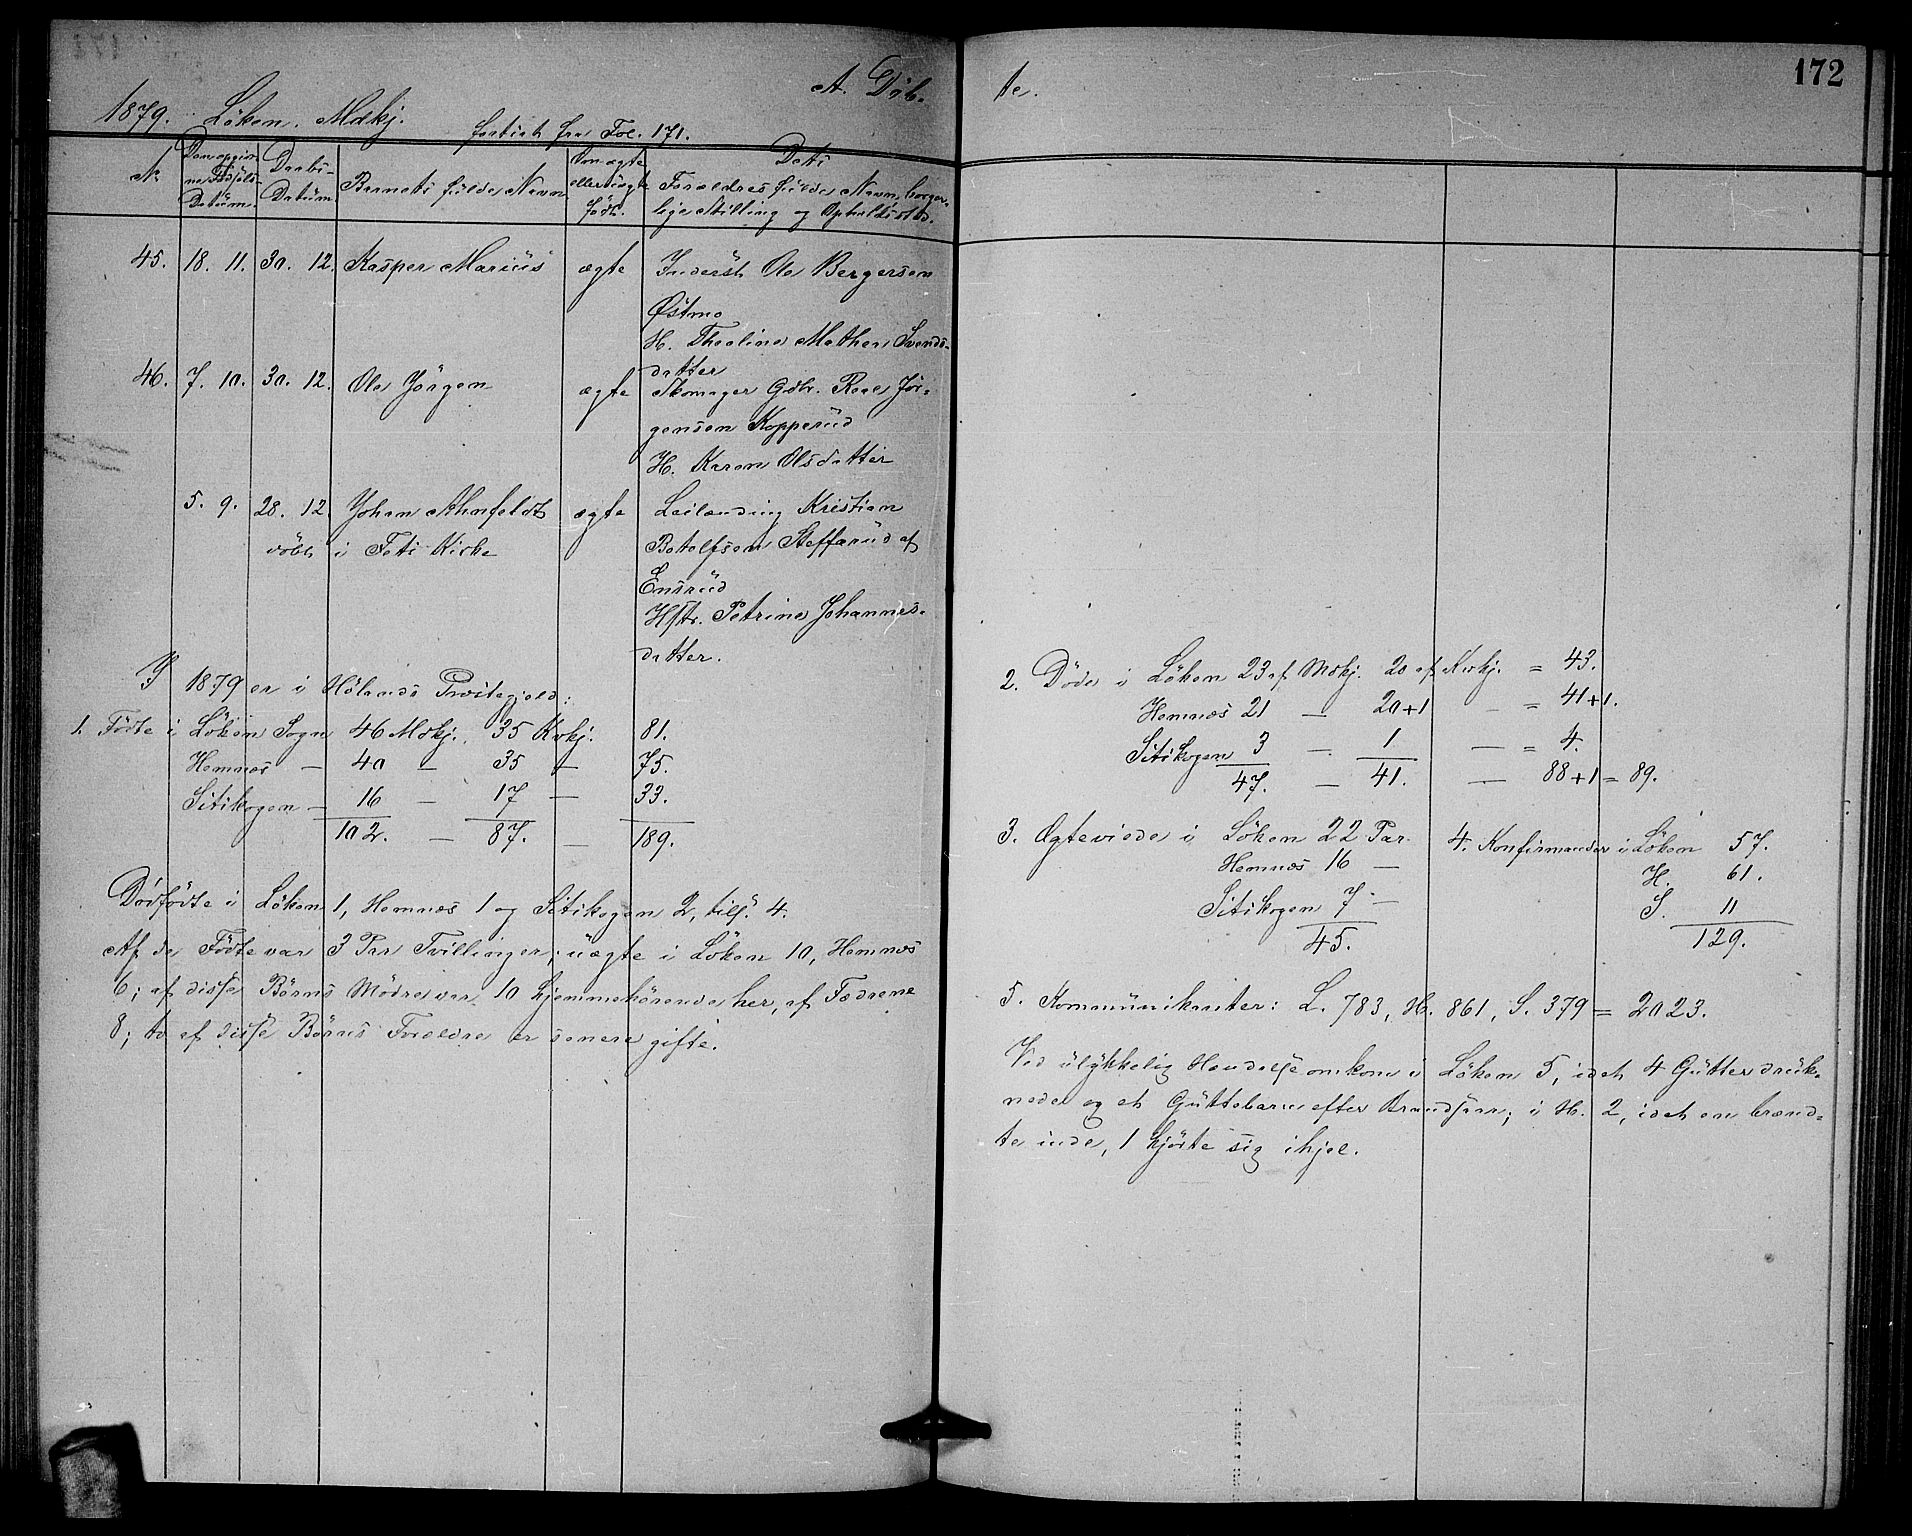 172
A. Döb-
te.
1879. Löken. Mdkj. fortsat fra Fol. 171.
No
Den opgivne Födsels-Datum.
Daabs-Datum.
Barnets fulde Navn
Om ægte eller uægte födt.
Dets Forældres fulde Navn, borger-
lige Stilling og Opholdssted.
45. 18. 11. 30. 12. Kasper Marius ægte Inderst Ole Bergersen
Østmo
H. Theoline Mathea Svends-
datter
46. 7. 10. 30. 12. Ole Jörgen ægte Skomager Gdbr. Roar Jör-
gensen Kopperud
H. Karen Olsdatter
5. 9. 28. 12. Johan Ahnfeldt ægte Leilænding Kristian
döbt i Fets Kirke Botolfsen Steffarud af
Ensrud
Hstr. Petrine Johannes-
datter.
I 1879 er i Hölands Præstegjeld:
1. Födte i Löken Sogn 46 Mdkj. 35 Kvkj. 81.
Hemnæs — 40 — 35 — 75.
Sitskogen — 16 — 17 — 33.
102. — 87. — 189.
Dödfödte i Löken 1, Hemnæs 1 og Sitskogen 2, tils. 4.
Af de Födte var 3 Par Tvillinger; uægte i Löken 10, Hemnæs
6; af disse Börns Mödre var 10 hjemmehörende her, af Fædrene
8; to af disse Börns Forældre er senere gifte.
2. Döde i Löken 23 af Mdkj. 20 af Kvkj. = 43.
Hemnæs 21 — 20+1 — = 41+1.
Sitskogen 3 — 1 — = 4.
47. — 41. — 88+1 = 89.
3. Ægteviede i Löken 22 Par.
Hemnæs 16 —
Sitskogen 7 —
45.
4. Konfirmander i Löken 57.
H. 61.
S. 11
129.
5. Kommunikanter: L. 783, H. 861, S. 379 = 2023.
Ved ulykkelig Hændelse omkom i Löken 5, idet 4 Gutter druk-
nede og et Guttebarn efter Brandsaar; i H. 2, idet en brænd-
te inde, 1 kjörte sig ihjel.